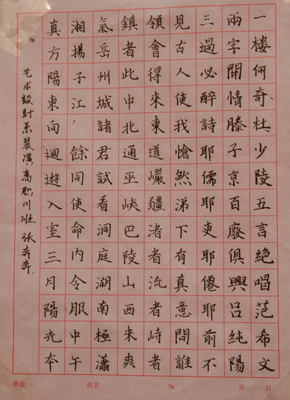 一樓何奇杜少陵五言絕唱范希文
兩字關情滕子京百廢俱興呂純陽
三過必醉詩耶儒耶吏耶僊耶前不
見古人使我愴然涕下有真意問誰
領會得來東道巖疆渚者流者峙者
鎮者此中北通巫峽巴陵山西來爽
氣岳州城諸君試看洞庭湖南極瀟
湘揚子江餘同使命內令服中午
真方陽東向迴遊入室三月陽光本
艺术設計系裝潢高职 班 張
單位 姓名 № 月 日